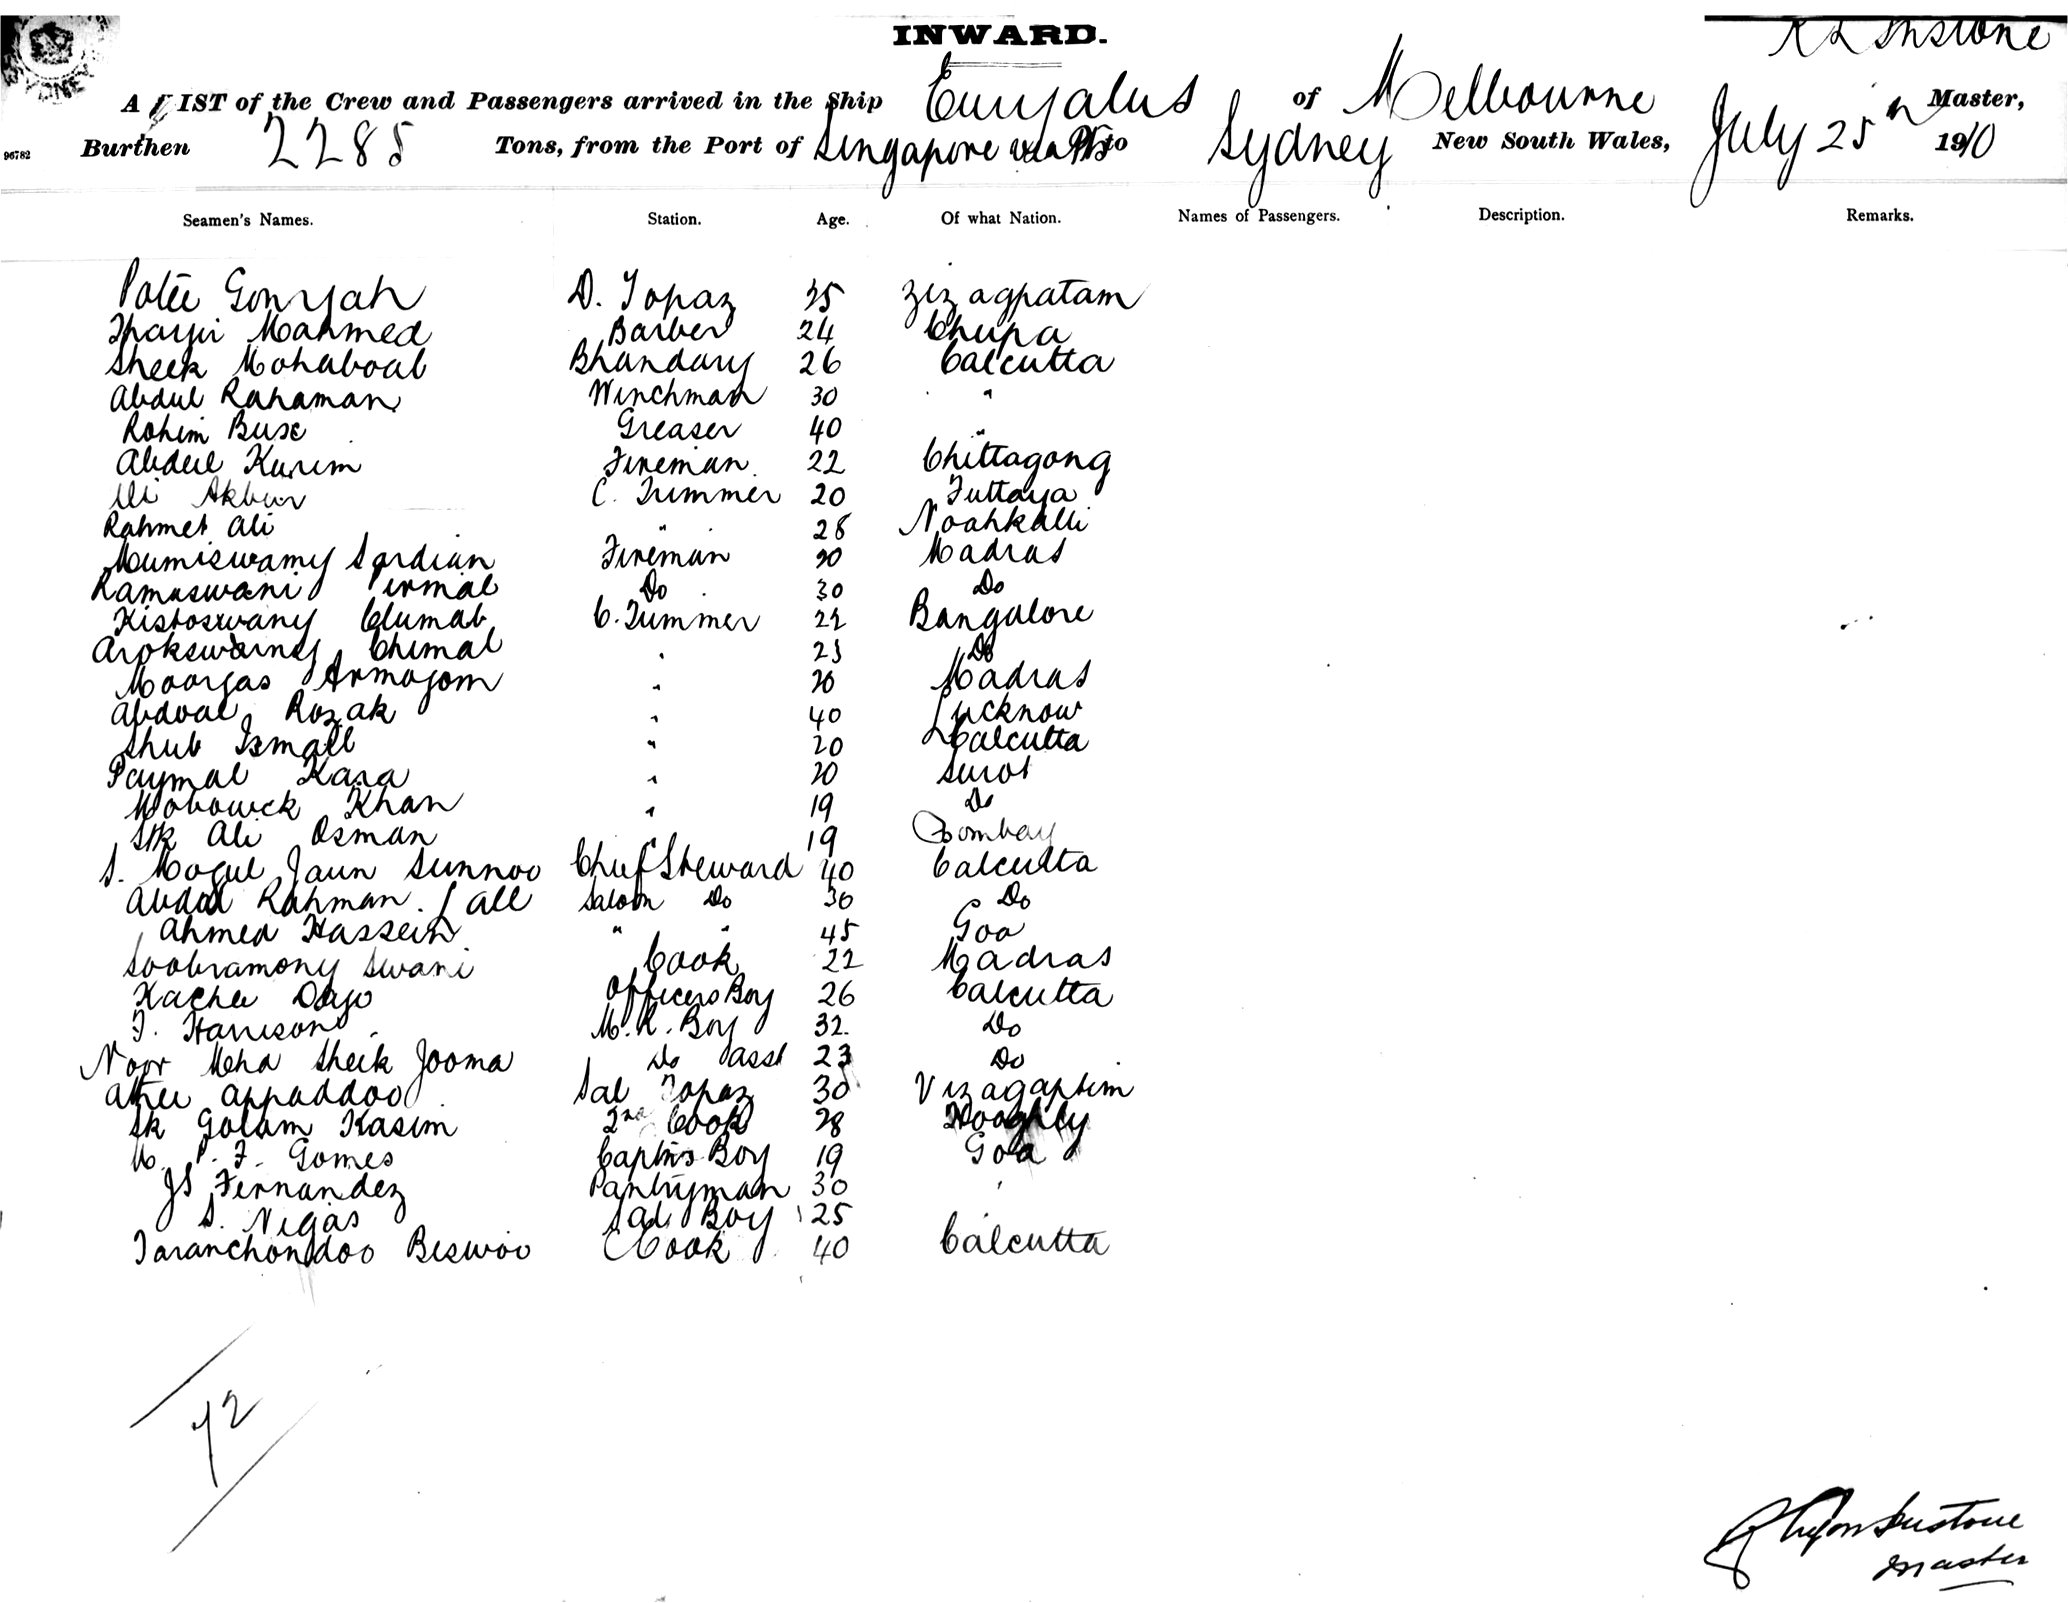 INWARD.
A LIST of the Crew and Passengers arrived in the Ship Euryalus of Melbourne Master,
96782 Burthen 2285 Tons, from the Port of Singapore via to Sydney New South Wales, July 25th 1910
Seamen's Names. Station. Age. Of what Nation. Names of Passengers. Description. Remarks.
Potee Gonryah D. Topaz 25 Zizagpatam
Mahmed Barber 24 Chupa
Sheek Mohaboab Bhandary 26 Calcutta
Abdul Rahaman Winchman 30 "
Rohim Busc Greaser 40 "
Abdul Kurim Fireman 22 Chittagong
Akbur C. Trimmer 20 Futtaya
Rahmet Ali " 28 Noahkalli
Mumiswamy Sardian Fireman 20 Madras
Ramaswani Pirmal Do 30 Do
Kistoswany Clumab C. Trimmer 22 Bangalore
Arokswamy Chimal " 23 Do
Moorgas Armogom " 20 Madras
Abdoal Rozak " 40 Lucknow
Shub Ismall " 20 Calcutta
Paymal Kara " 20 Surot
Mobowck Khan " 19 Do
Shk Ali Osman " 19 Bombay
S. Mogul Jaun Sunnoo Chief Steward 40 Calcutta
Abdool Rahman / all Saloon Do 36 Do
Ahmed Hassein " " 45 Goa
Soobramony Swani Cook 22 Madras
Kacher Officers Boy 26 Calcutta
T. Harrison M. R. Boy 32 Do
Noor Meha Sheik Jooma Do asst 23 Do
Appaddoo Sal Topaz 30 Vizagaptim
Sk Golam Kasim 2nd Cook 28 Hooghly
P. F. Gomes Captns Boy 19 Goa
JS Fernandez Pantryman 30 "
S. Nigas Sal Boy 25
Taranchondoo Beswoo C Cook 40 Calcutta
72
Master